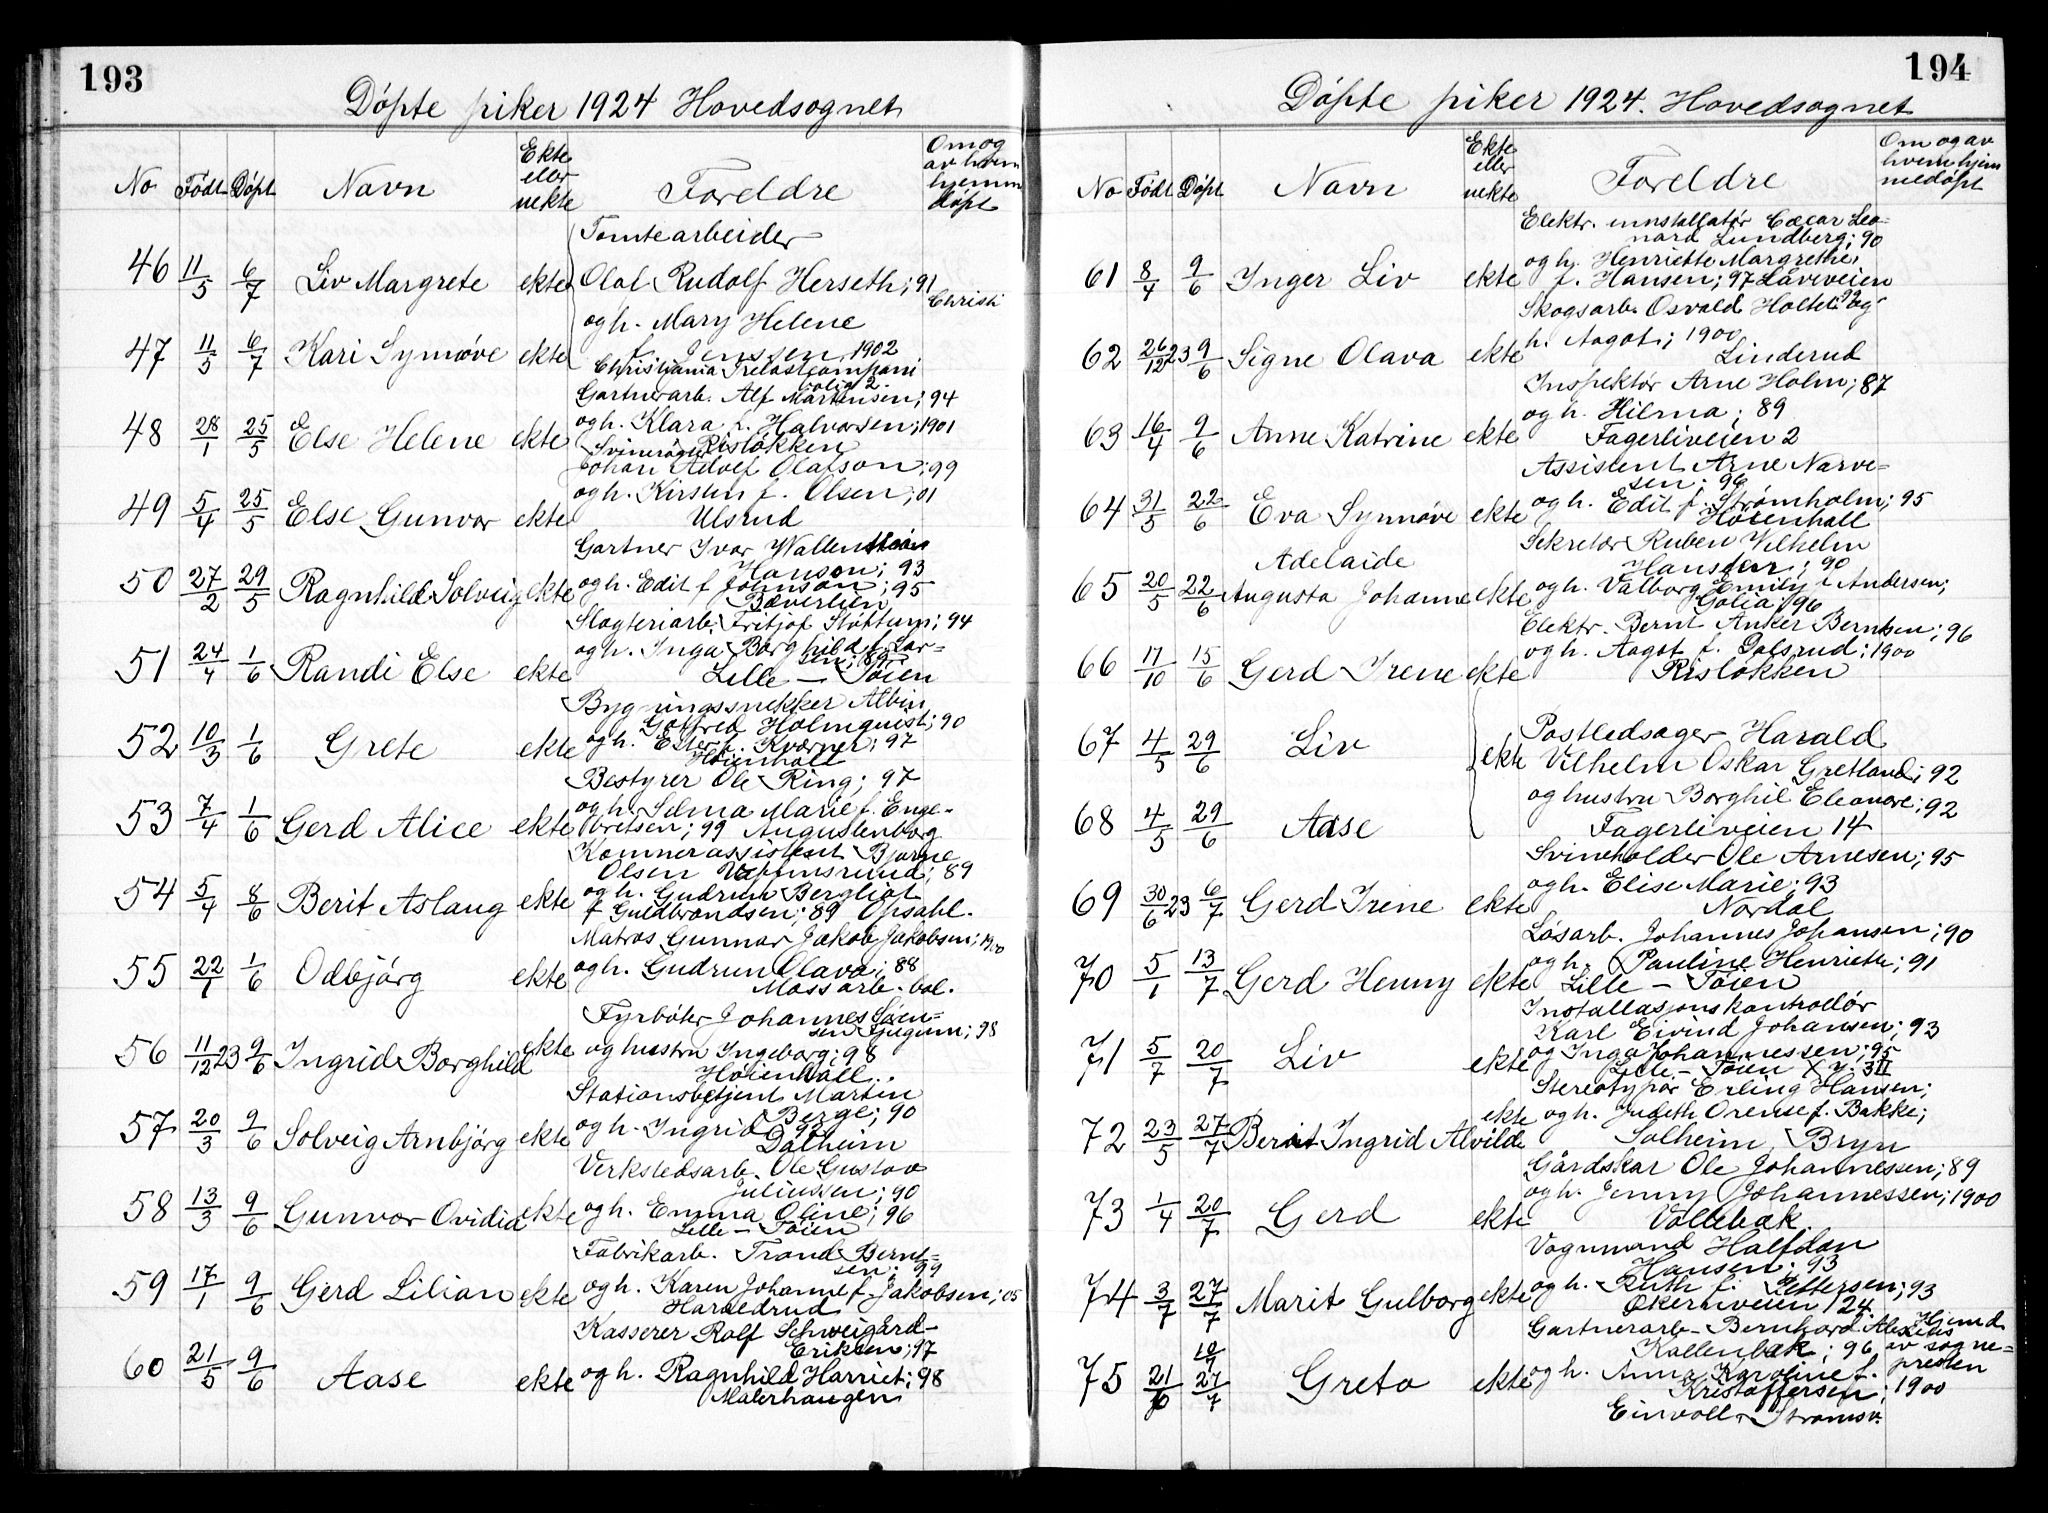 193
Døpte piker 1924 Hovedsognet
No Født Døpt Navn Ekte eller uekte Foreldre Om og av hvem hjemmedøpt
Tomtearbeider
46 11/5 6/7 Liv Margrete ekte Olaf Rudolf Herseth; 91
Christi
og h. Mary Helene
47 11/5 6/7 Kari Synnøve ekte f. Jenssen, 1902
Christiania Trelastcompani
Gartnerarb. Alf Martinsen; 94
48 28/1 25/5 Else Helene ekte og h. Klara f. Halvorsen; 1901
Risløkken
Johan Adolf Olafson; 99
49 5/4 25/5 Else Gunvor ekte og h. Kirsten f. Olsen; 01
Ulsrud
Gartner Ivar
Hanson; 93
50 27/2 29/5 Ragnhild Solveig ekte og h. Edit f. Johnson; 95
Bæverlien
Slagteriarb. Fritjof Sløttum; 94
51 24/4 1/6 Randi Else ekte og h. Inga Borghild f. Lar-
sen; 89
Lille-Tøien
Bygningssnekker Albin
Gotfred Holmquist; 90
52 10/3 1/6 Grete ekte og h. Ester f. Kværner; 97
Høienhall
Bestyrer Ole Ring; 97
53 7/4 1/6 Gerd Alice ekte og h. Selma Marie f. Enge-
bretsen; 99 Augustenborg
Kemnerassistent Bjarne
Olsen; 89
54 5/4 8/6 Berit Aslaug ekte og h. Gudrun Bergliot
f. Guldbrandsen; 89 Opsahl.
Matros Gunnar Jakob Jakobsen; 1900
55 22/1 1/6 Odbjørg ekte og h. Gudrun Olava; 88
Massarb. bol.
Fyrbøter Johannes Søren=
sen Gjugum; 98
56 11/12 23 9/6 Ingrid Borghild ekte og hustru Ingeborg; 98
Høienhall
Stationsbetjent Martin
Berge; 90
57 20/3 9/6 Solveig Arnbjørg ekte og h. Ingrid
Dalheim
Verkstedsarb. Ole Gustav
Juliussen; 90
58 13/3 9/6 Gunvor Ovidia ekte og h. Emma Oline; 96
Lille-Tøien
Fabrikarb. Trond Bernt=
sen; 99
59 17/1 9/6 Gerd Lilian ekte og h. Karen Johanne f. Jakobsen; 05
Haraldrud
Kasserer Rolf Schweigård-
Eriksen; 97
60 21/5 9/6 Aase ekte og h. Ragnhild Harriet; 98
Malerhaugen
194
Døpte piker 1924. Hovedsognet
No Født Døpt Navn Ekte eller uekte Foreldre Om og av hvem hjem medøpt
Elektr. innstallatør Cæcar Leo=
nard Lundberg; 90
og h. Henriette Margrethe
61 8/4 9/6 Inger Liv ekte f. Hansen; 97 Låveveien
Skogsarb. Osvald Holter; 99 og
62 26/12 23 9/6 Signe Olava ekte h. Aagot; 1900
Linderud
Inspektør Arne Holm; 87
63 16/4 9/6 Anne Katrine ekte og h. Hilma; 89
Fagerliveien 2
Assistent Arne Narve=
sen; 96
64 31/5 22/6 Eva Synnøve ekte og h. Edit f. Strømholm; 95
Høienhall
Sekretær Ruben Vilhelm
Adelaide
65 20/5 22/6 Augusta Johanne ekte og h. Valborg Emily f. Andersen;
Golia 96
Elektr. Bernt Anker Berntsen; 96
og h. Aagot f. Dalsrud; 1900
66 17/10 15/6 Gerd Irene ekte Risløkken
Postledsager Harald
67 4/5 29/6 Liv ekte Vilhelm Oskar Gretland; 92
og hustru Borghil Eleonore; 92
68 4/5 29/6 Aase Fagerliveien 14
Svineholder Ole Arnesen; 95
og h. Elise Marie; 93
69 30/6 23 6/7 Gerd Irene ekte Nordal
Løsarb. Johannes Johansen; 90
og h. Pauline Henriette; 91
70 5/1 13/7 Gerd Henny ekte Lille-Tøien
Installasjonskontrollør
Karl Eivind Johansen; 93
71 5/7 20/7 Liv ekte og Inga Johannessen; 95
Lille-Tøien X v. III
Stereotypør Erling Hansen;
ekte og h. Judith Orense f. Bakke;
72 23/5 27/7 Berit Ingrid Alvilde Solheim, Bryn
Gårdskar Ole Johannessen; 89
og h. Jenny Johannessen; 1900
73 1/4 20/7 Gerd ekte Vollebæk.
Vognmand Halfdan
Hansen; 93
74 3/7 27/7 Marit Gulborg ekte og h. Ruth f. Pettersen; 93
Økernveien 124
Gartnerarb. Bernhard Alexius Hjemd
Kallenbæk; 96 av sogne=
75 21/6 10/7 27/7 Greta ekte og h. Anna Karoline f. presten
Kristoffersen; 1900
Einvoll Strømsv.